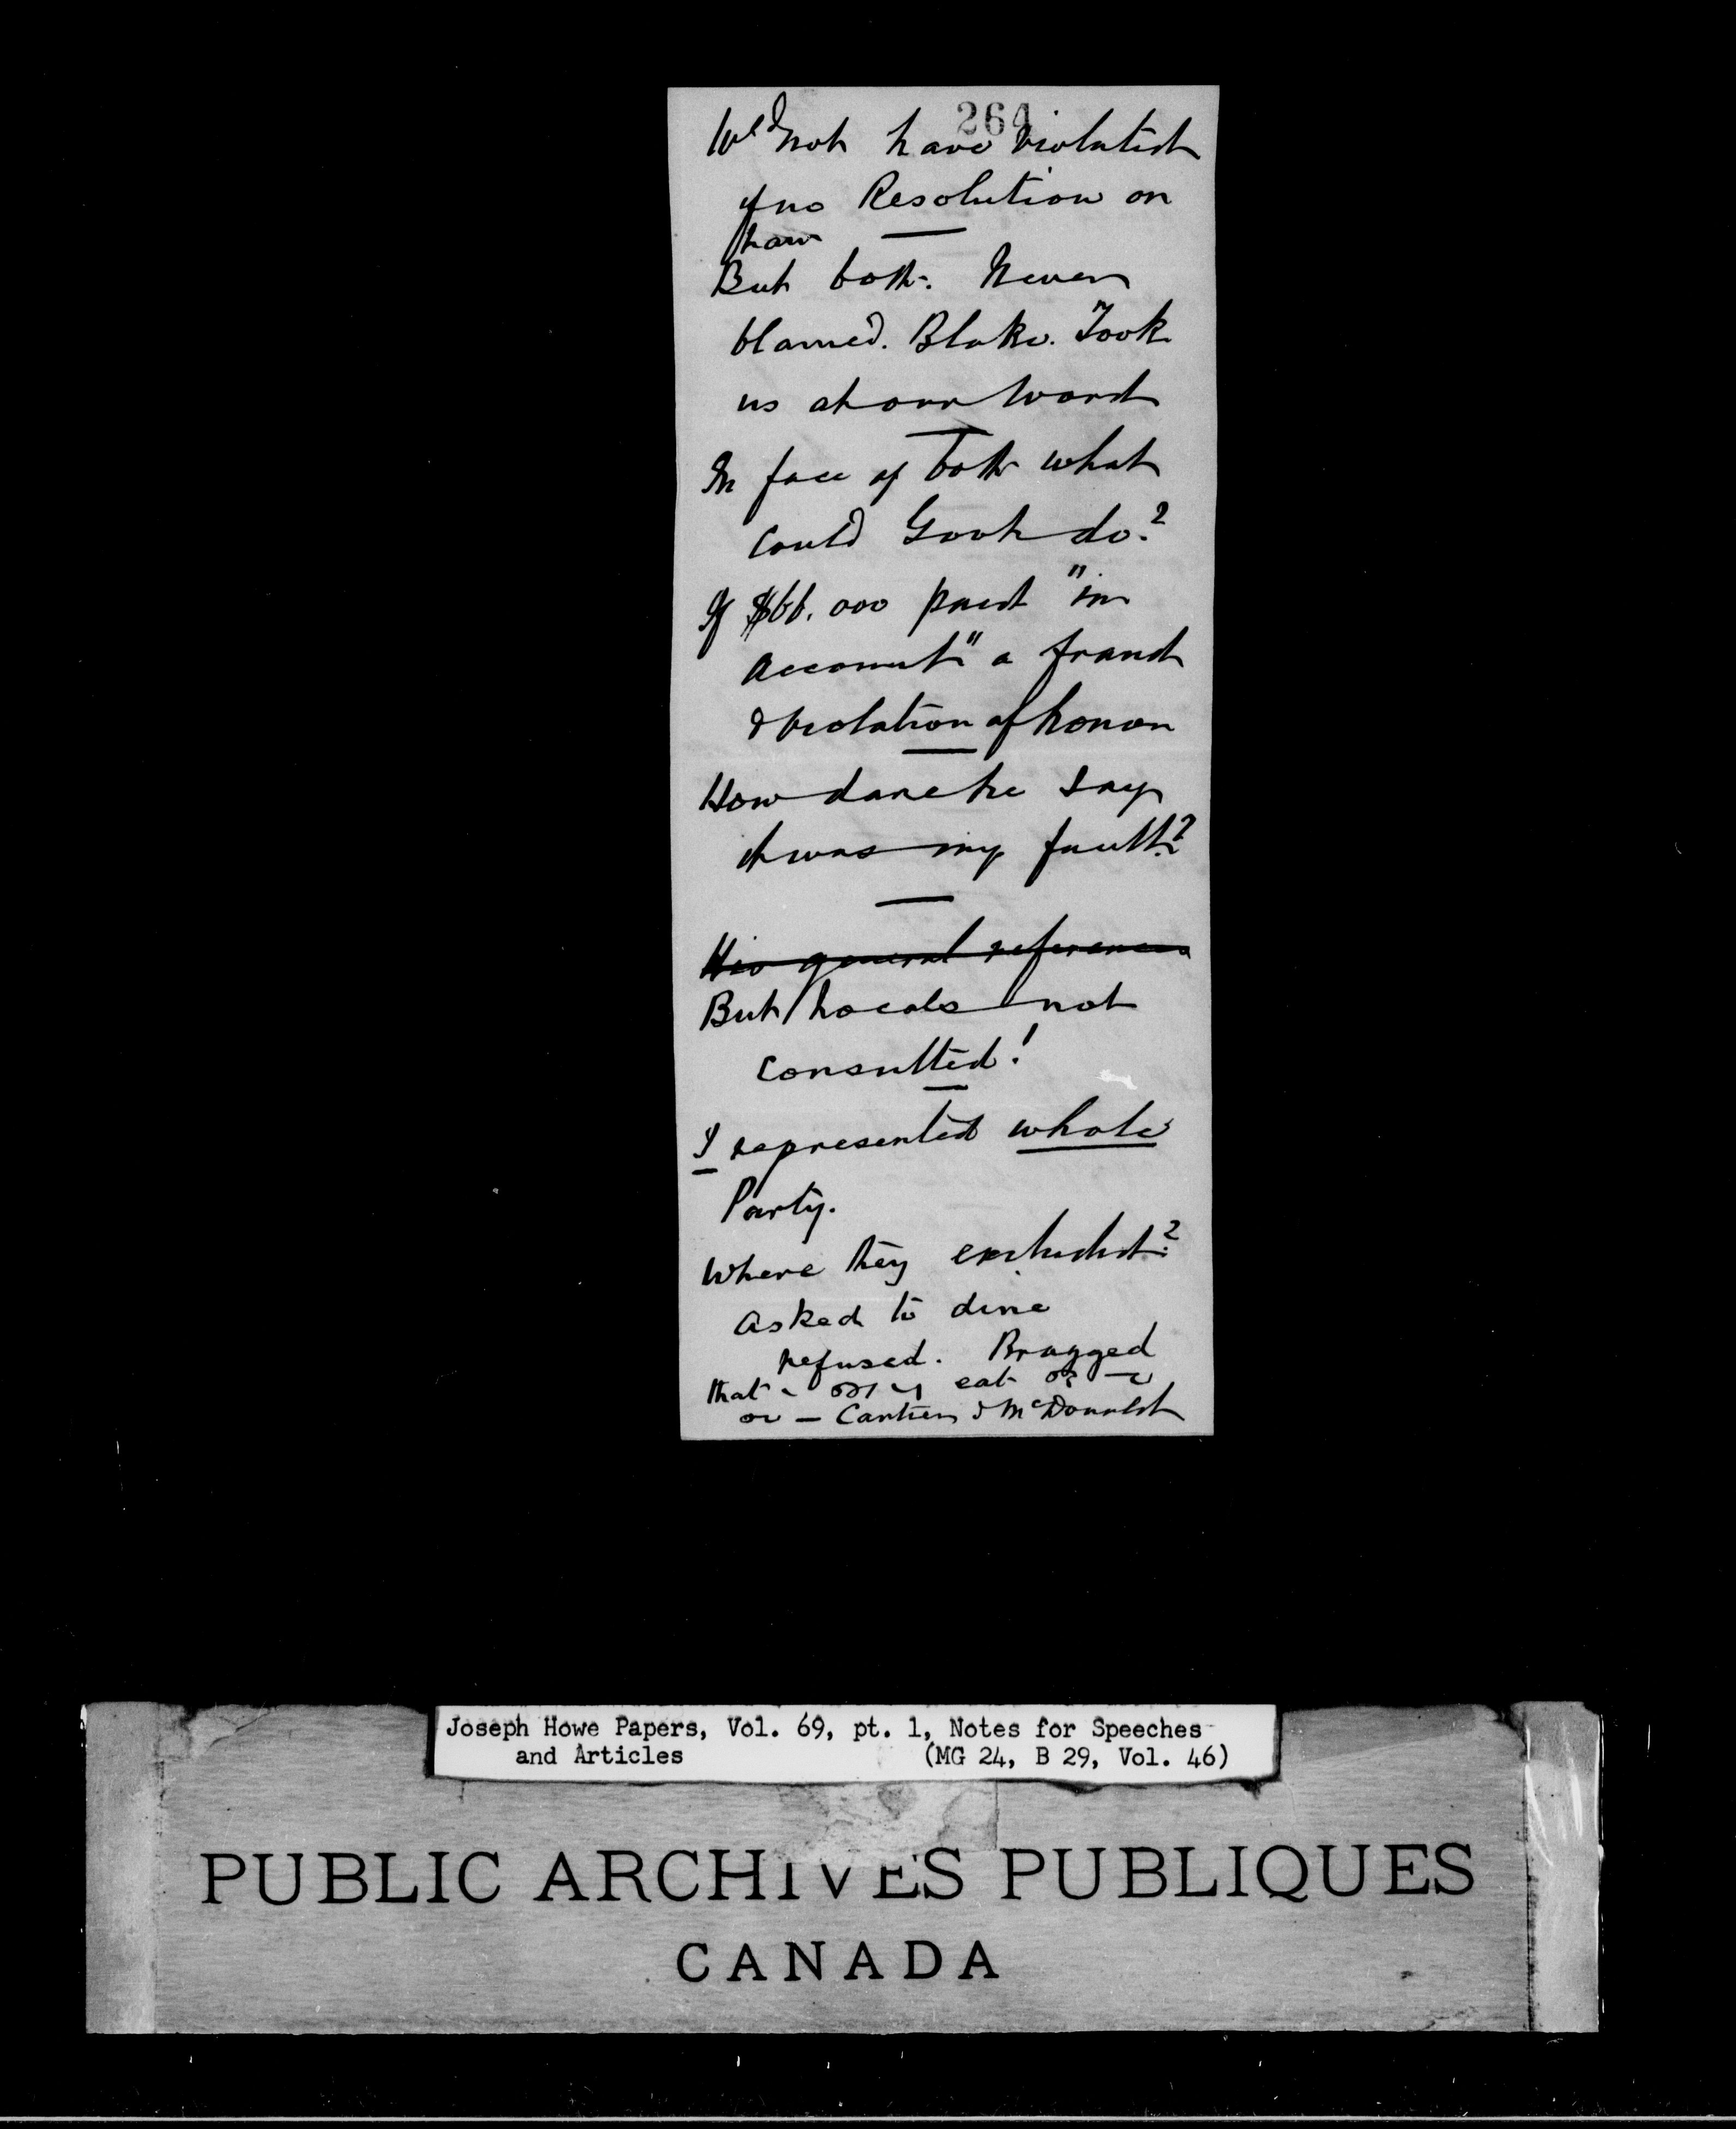 264
Wld not have violated
if no Resolution or
Law
But both. Never
blamed. Blake. Took
us at our word
In face of both what
could Govt do?
If $66.000 paid "in
account" a fraud
& violation of honor
How dare he say
it was my fault?
His general references
But Locals not
consulted!
I represented whole
Party.
Where they excluded?
asked to dine
refused. Bragged
that eat
or — Cartier & McDonald
Joseph Howe Papers, Vol. 69, pt. 1, Notes for Speeches
and Articles (MG 24, B 29, Vol. 46)
PUBLIC ARCHIVES PUBLIQUES
CANADA